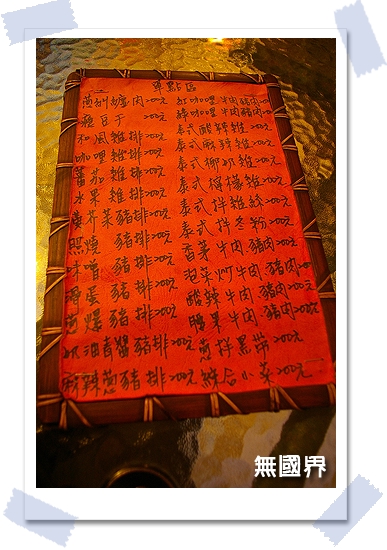 單點區
蔥爆 肉 200元
豆干 200元
和風雞排 200元
咖哩雞排 200元
蕃茄雞排 200元
水果雞排 200元
芥菜豬排 200元
照燒豬排 200元
味噌豬排 200元
蛋豬排 200元
爆豬排 200元
奶油青醬豬排 200元
酸辣蔥豬排 200元
紅咖哩牛肉豬肉 200元
綠咖哩牛肉豬肉 200元
泰式酸辣雞 200元
泰式麻辣雞 200元
泰式椰奶雞 200元
泰式檸檬雞 200元
泰式拌雞絲 200元
泰式拌冬粉 200元
香茅牛肉豬肉 200元
泡菜炒牛肉豬肉 200元
酸辣牛肉豬肉 200元
腰果牛肉豬肉 200元
蔥拌黑帶 200元
綜合小菜 200元
無國界